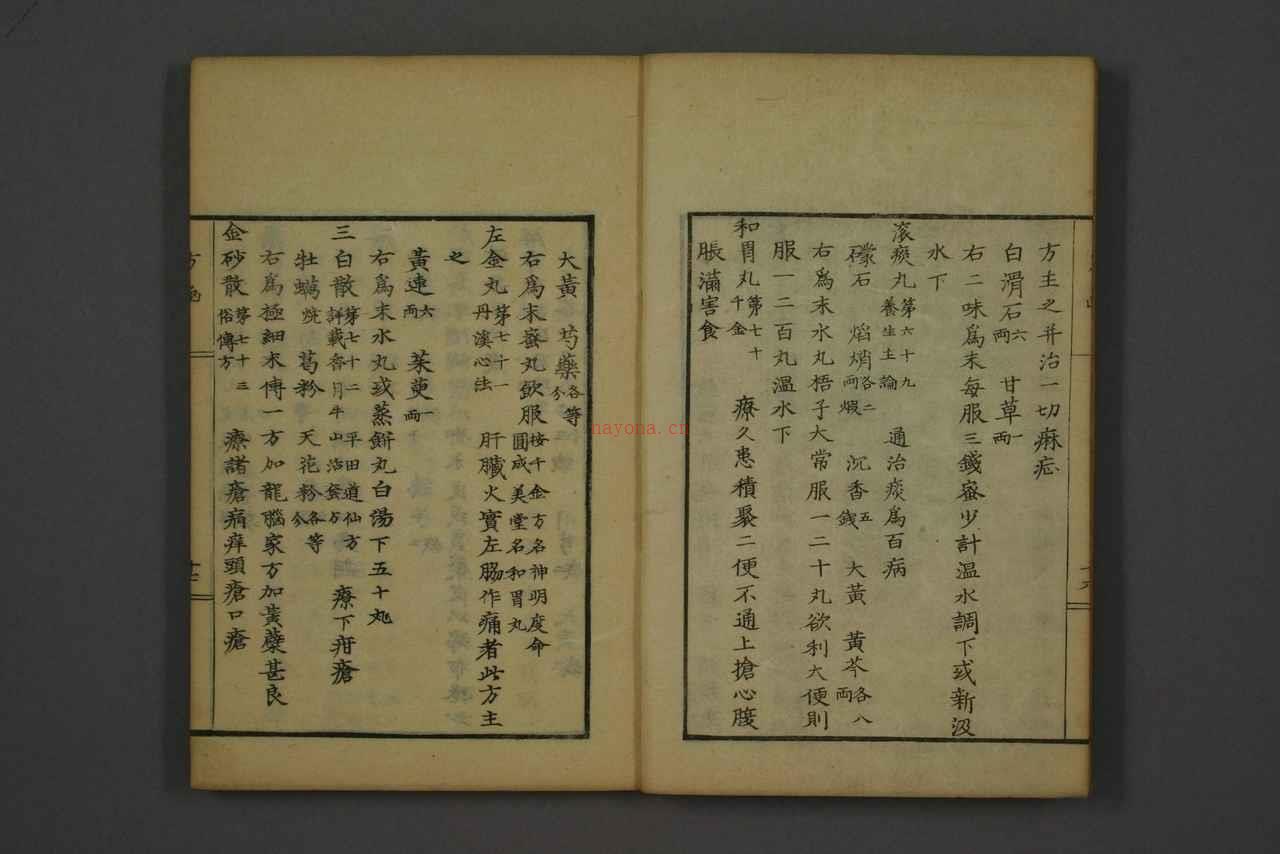 方主之并治一切痳疟
白滑石六兩 甘草一兩
右二味爲末每服三錢蜜少計温水調下或新汲
水下
滚痰丸第六十九養生主論 通治痰爲百病
礞石 焰焇各二兩煆 沉香五錢 大黄 黄芩各八兩
右爲末水丸梧子大常服一二十丸欲利大便則
服一二百丸温水下
和胃丸第七十千金 療久患積聚二便不通上搶心腹
脹滿害食
大黄 芍藥各等分
右爲末蜜丸飲服按千金方名神明度命圓成美堂名和胃丸
左金丸第七十一丹溪心法 肝臟火實左脇作痛者此方主
之
黄連六兩 茱萸一兩
右爲末水丸或蒸餅丸白湯下五十丸
三白散第七十二平田道仙方詳載香月牛山治套方 療下疳瘡
牡蠣燒 葛粉 天花粉各等分
右爲極細末傅一方加龍腦家方加黄蘗甚良
金砂散第七十三俗傳方 療諸瘡病痒頭瘡口瘡
方函
nayona.cn